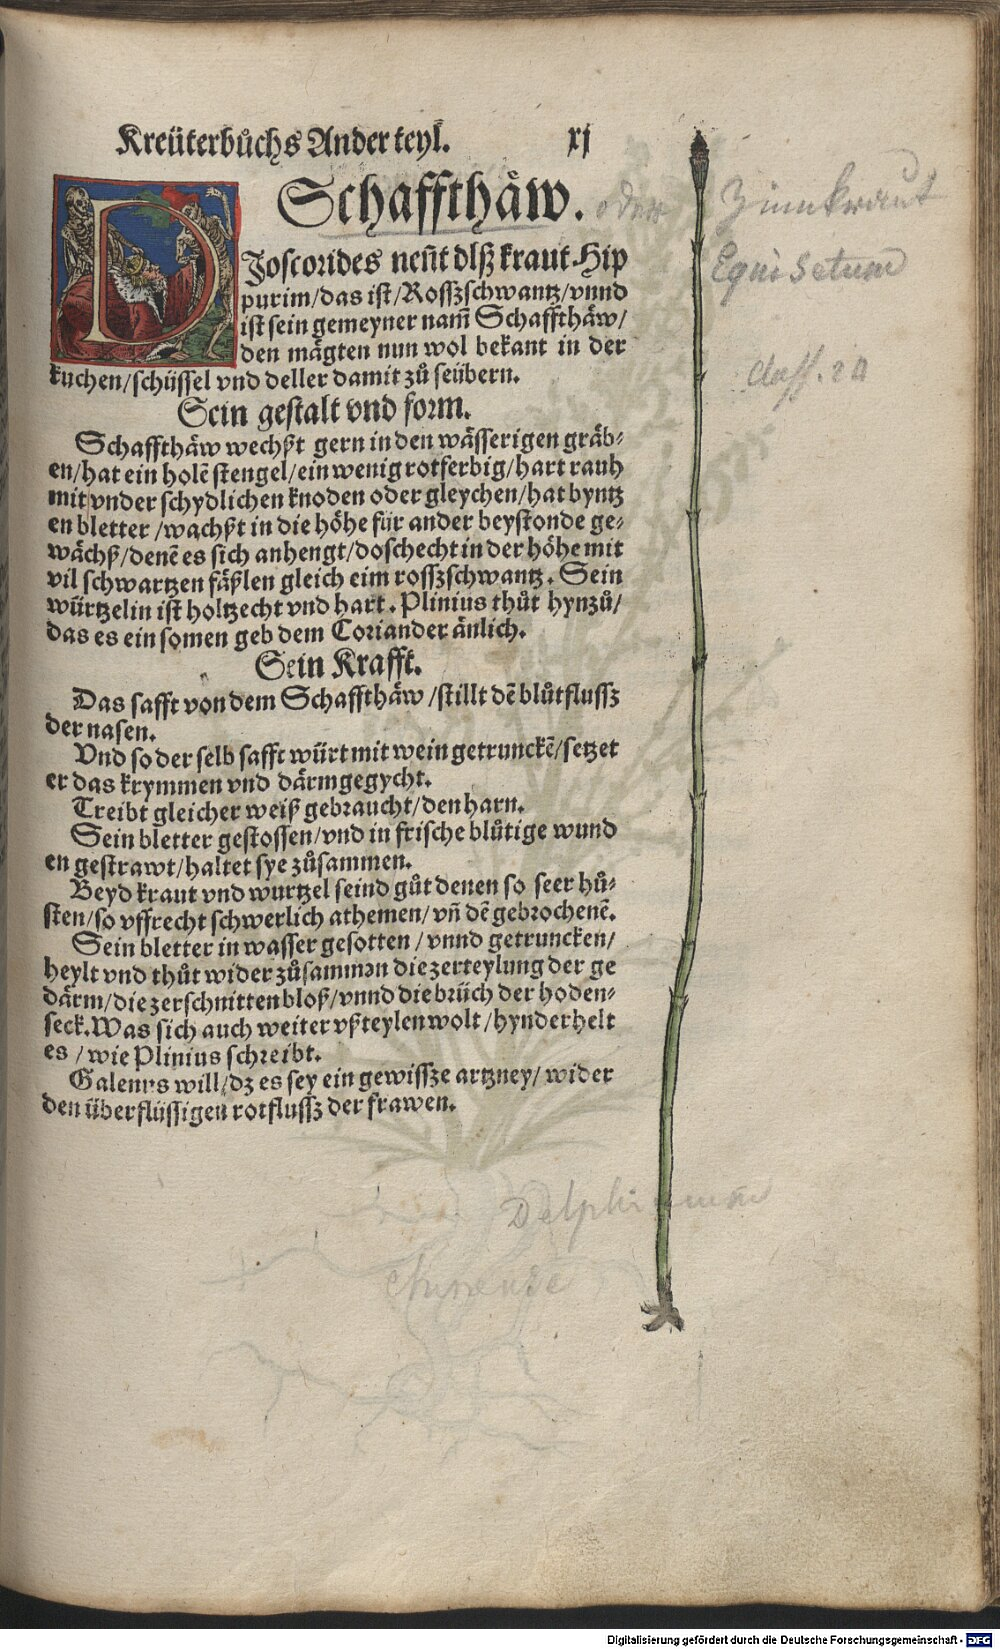 Kreüterbůchs Ander teyl. xj
Schaffthäw. oder Zinnkraut
Equisetum
Class. 24
DJoscorides neñt diß kraut Hip
purim/das ist/Rosszschwantz/vnnd
ist sein gemeyner nam̃ Schaffthäw/
den mägten nun wol bekant in der
kuchen/schüssel vnd deller damit zů seübern.
Sein gestalt vnd form.
Schaffthäw wechßt gern in den wässerigen gräb⸗
en/hat ein holẽ stengel/ein wenig rotferbig/hart rauh
mit vnderschydlichen knoden oder gleychen/hat byntz
en bletter/wachßt in die höhe für ander beystonde ge⸗
wächß/denẽ es sich anhengt/doschecht in der höhe mit
vil schwartzen fäßlen gleich eim rosszschwantz. Sein
würtzelin ist holtzecht vnd hart. Plinius thůt hynzů/
das es ein somen geb dem Coriander änlich.
Sein Krafft.
Das safft von dem Schaffthäw/stillt dẽ blůtflussz
der nasen.
Vnd so der selb safft würt mit wein getrunckẽ/setzet
er das krymmen vnd därmgegycht.
Treibt gleicher weiß gebraucht/den harn.
Sein bletter gestossen/vnd in frische blůtige wund
en gestrawt/haltet sye zůsammen.
Beyd kraut vnd wurtzel seind gůt denen so seer hů⸗
sten/so vffrecht schwerlich athemen/vñ dẽ gebrochenẽ.
Sein bletter in wasser gesotten/vnnd getruncken/
heylt vnd thůt wider zůsammen die zerteylung der ge
därm/die zerschnitten bloß/vnnd die brüch der hoden⸗
seck. Was sich auch weiter vßteylen wolt/hynderhelt
es/wie Plinius schreibt.
Galenus will/dz es sey ein gewissze artzney/wider
den überflüssigen rotflussz der frawen.
Delphinium
chinense
Digitalisierung gefördert durch die Deutsche Forschungsgemeinschaft - DFG